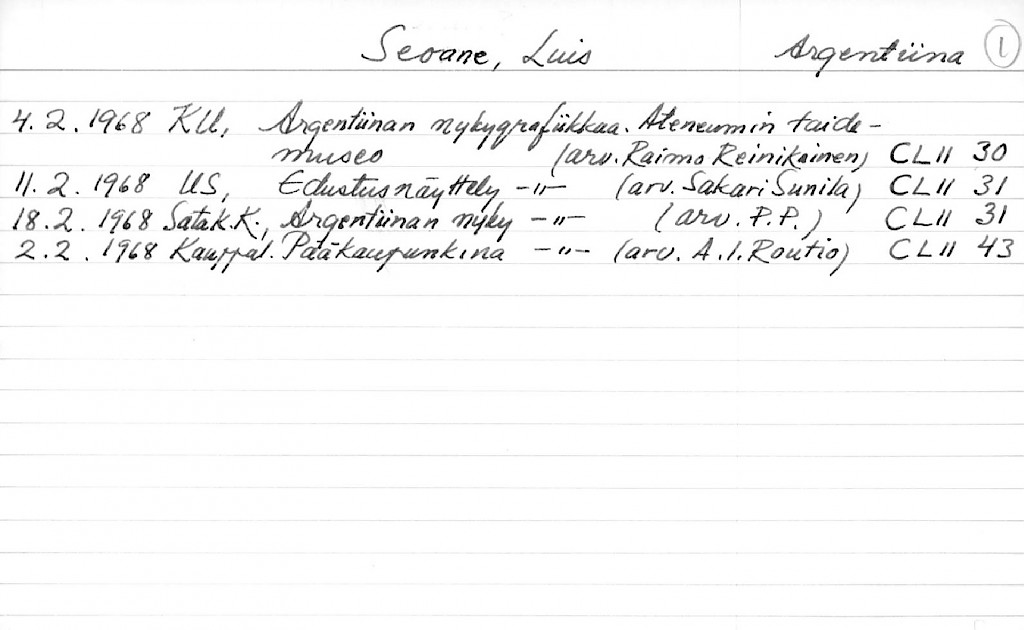 Seoane, Luis Argentiina 1
4.2.1968 KU, Argentiinan nykygrafiikkaa. Ateneumin taide-
museo (arv. Raimo Reinikainen) CLII 30
11.2.1968 US, Edustusnäyttely -"- (arv. Sakari Sunila) CLII 31
18.2.1968 Satak.K., Argentiinan nyky -"- (arv. P.P.) CLII 31
2.2.1968 Kauppal. Pääkaupunkina -"- (arv. A.I. Routio) CLII 43